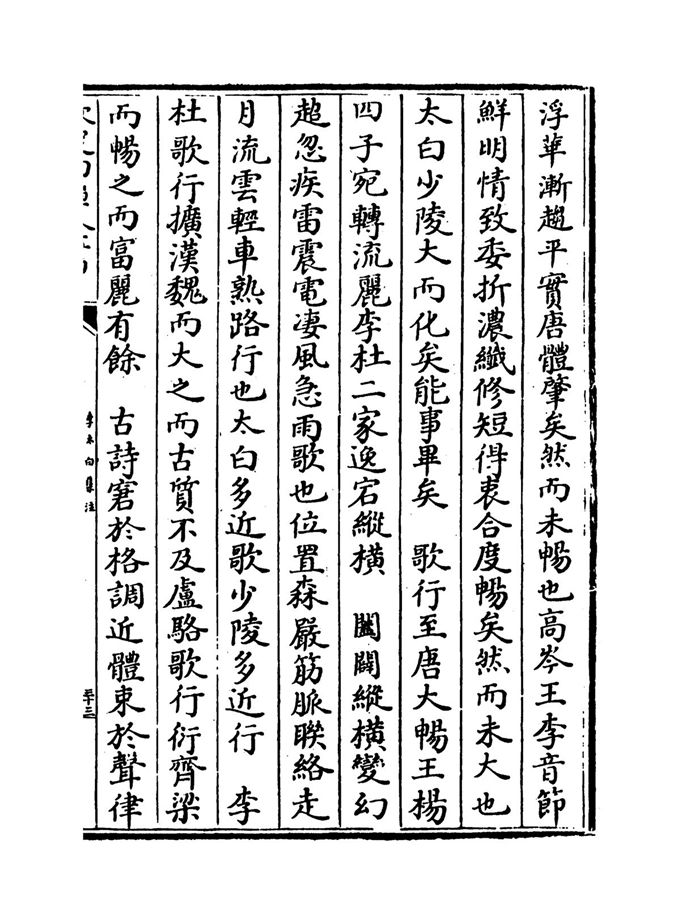 浮華漸趨平實唐體肇矣然而未暢也高岑王李音節
鮮明情致委折濃纖修短得衷合度暢矣然而未大也
太白少陵大而化矣能事畢矣　歌行至唐大暢王楊
四子宛轉流麗李杜二家逸宕縱橫　闔闢縱橫變幻
超忽疾雷震電凄風急雨歌也位置森嚴筋脈聯絡走
月流雲輕車熟路行也太白多近歌少陵多近行　李
杜歌行擴漢魏而大之而古質不及盧駱歌行衍齊梁
而暢之而富麗有餘　古詩窘於格調近體束於聲律
李太白集注
三十三